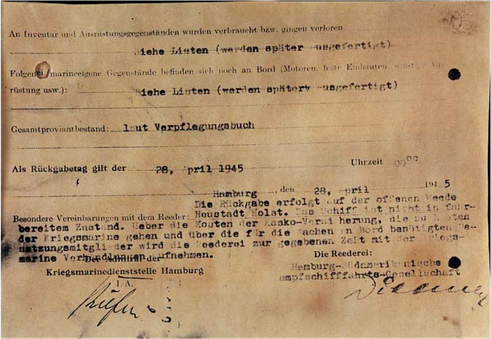 An Inventar und Ausrüstungsgegenständen wurden verbraucht bzw. gingen verloren
siehe Listen (werden später ausgefertigt)
Folgende marineeigene Gegenstände befinden sich noch an Bord (Motoren, feste Einbauten,
rüstung usw.): siehe Listen (werden später ausgefertigt)
Gesamtproviantbestand: laut Verpflegungsbuch
Als Rückgabetag gilt der 28. April 1945 Uhrzeit
Hamburg, den 28. April
Die Rückgabe erfolgt auf der offenen Reede
Besondere Vereinbarungen mit dem Reeder: Neustadt/Holst. Das Schiff ist nicht in fahr-
bereitem Zustand. Ueber die Kosten der Kasko-Versicherung, die zu
der Kriegsmarine gehen und über die für die Wachen an Bord benötigten
satzungsmitglieder wird die Reederei zur gegebenen Zeit mit der Kriegs-
marine Verhandlungen aufnehmen.
Die Reederei:
Kriegsmarinedienststelle Hamburg
Hamburg-Südamerikanische
Dampfschifffahrts-Gesellschaft
I.A.